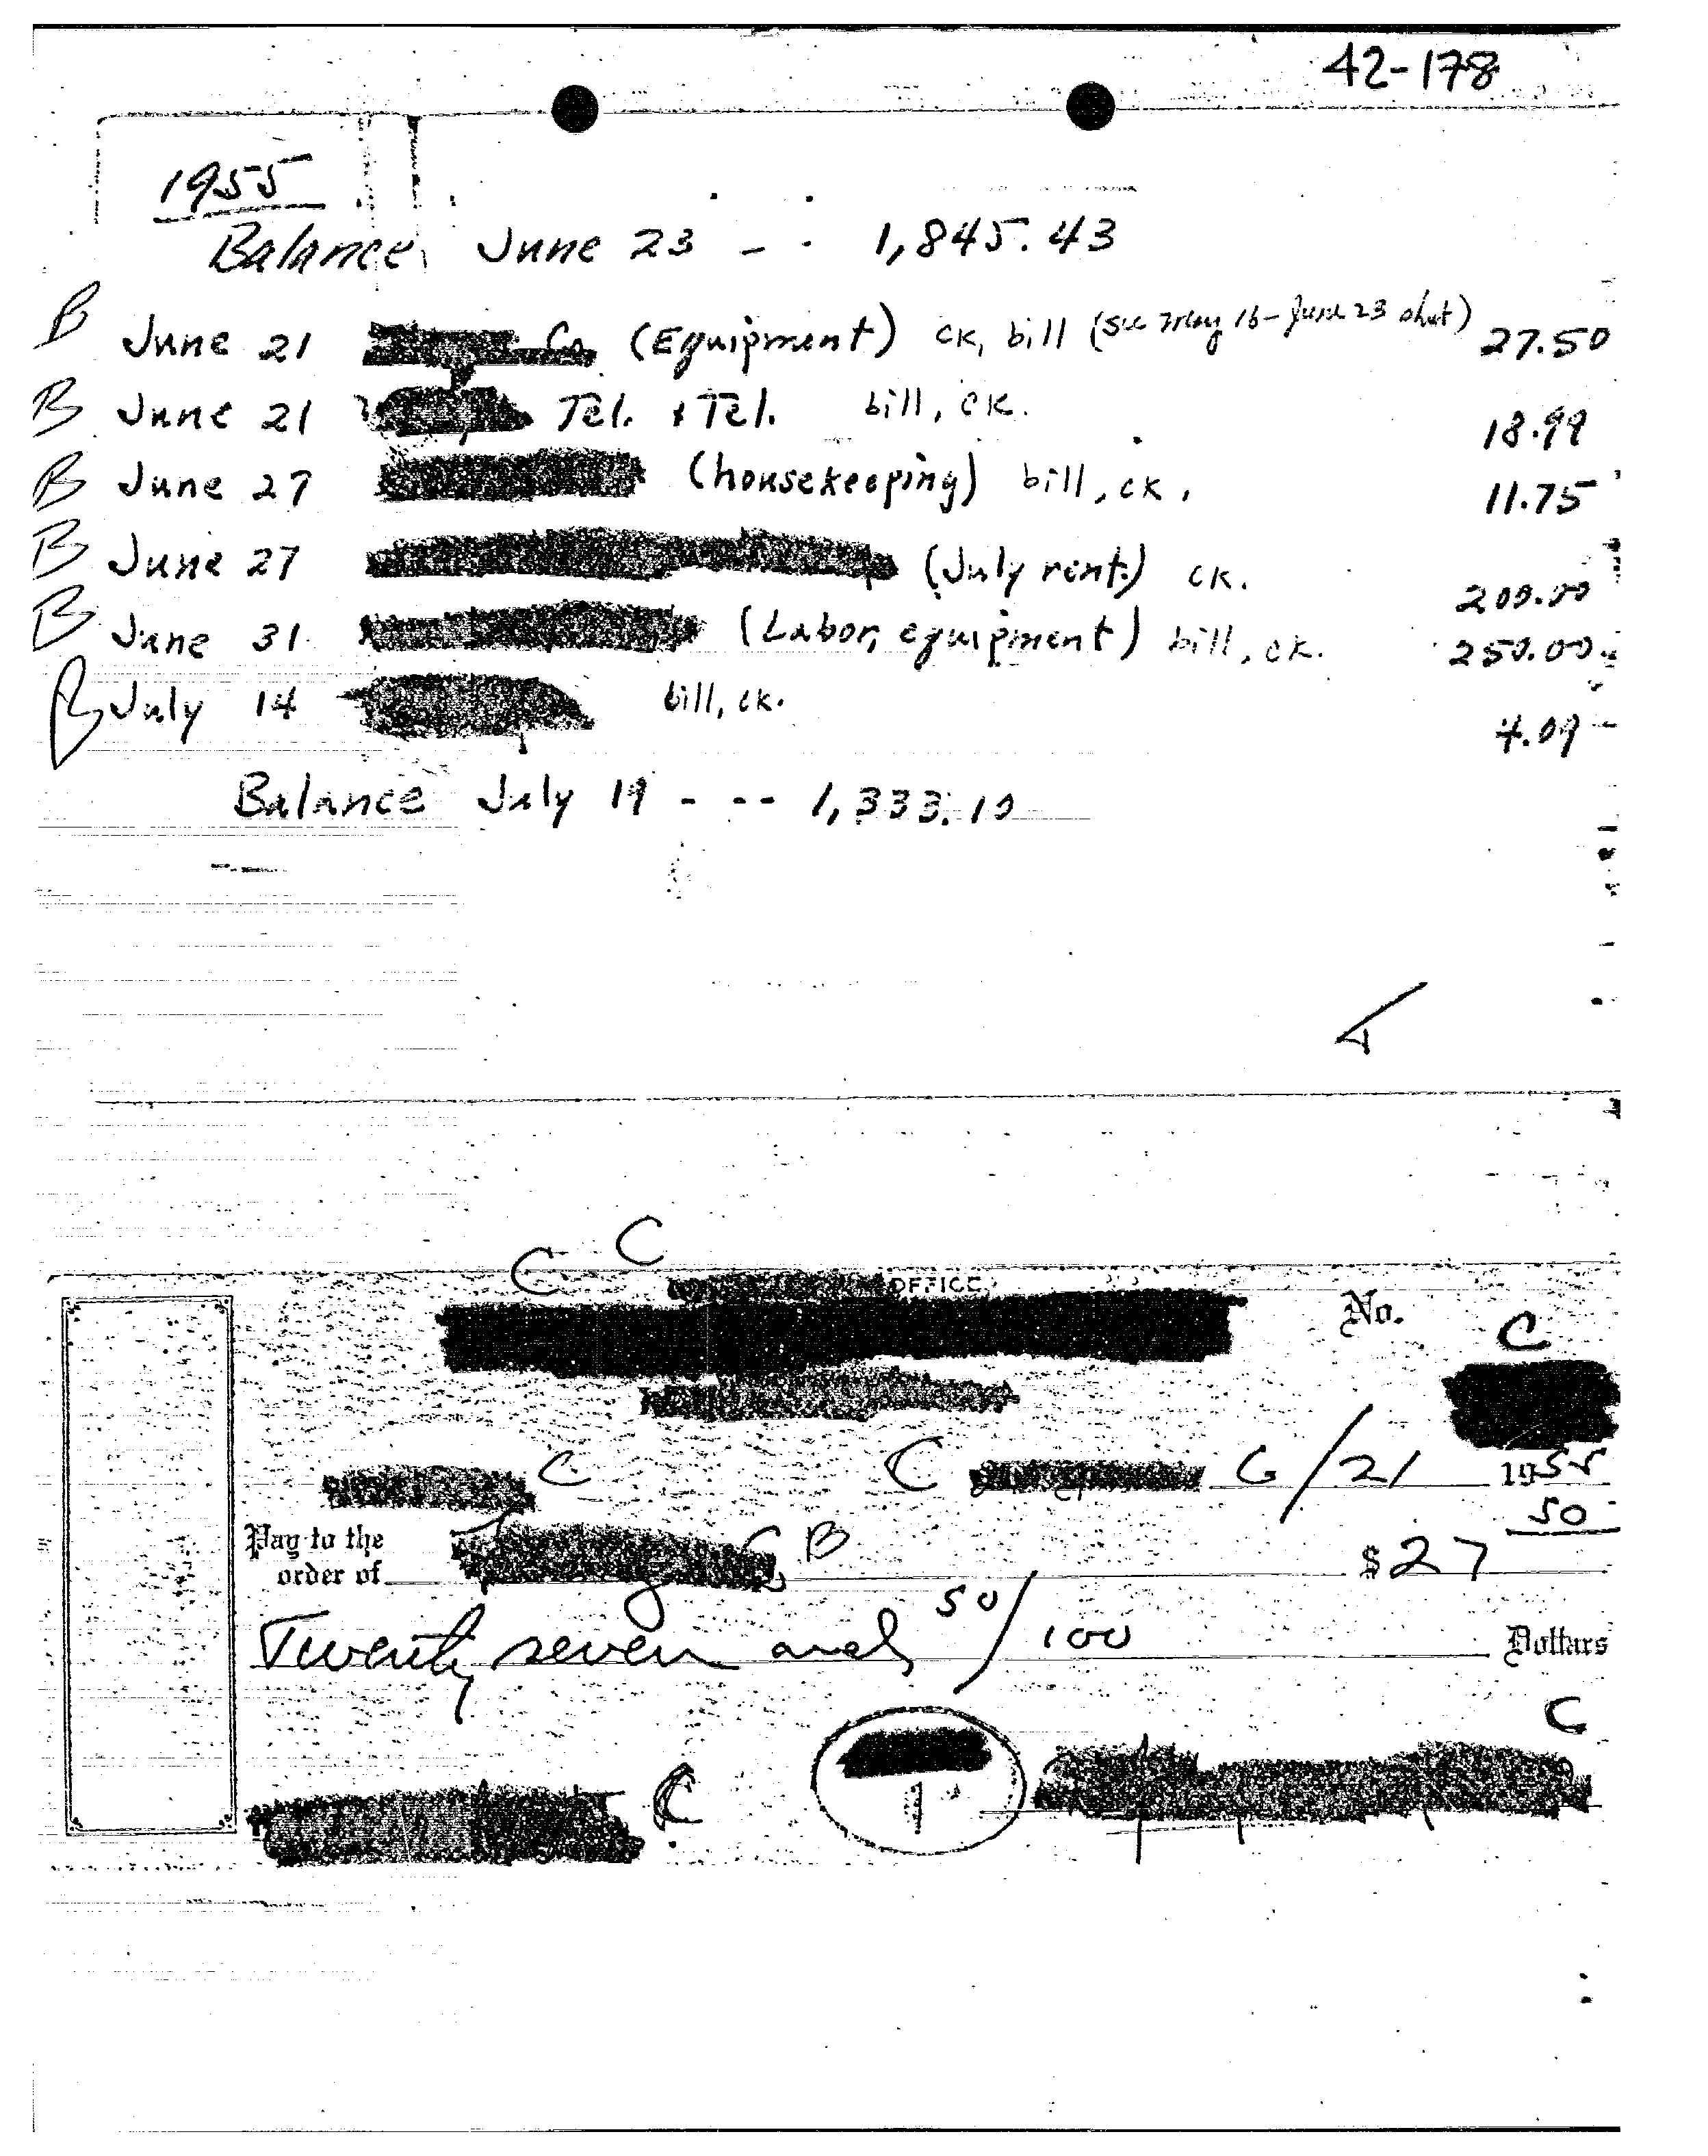 42-178
1955
Balance June 23 - - 1,845.43
B June 21 Co (Equipment) ck, bill (see May 16 - June 23 sheet) 27.50
B June 21 Tel. & Tel. bill, ck. 18.99
B June 27 (housekeeping) bill, ck. 11.75
B June 27 (July rent) ck. 200.00
B June 31 (Labor, equipment) bill, ck. 250.00
B July 14 bill, ck. 4.09
Balance July 19 - -- 1,333.10
C C
OFFICE
No.
C
C C 6/21 1955
Pay to the
order of B $27 50
Twenty seven and 50/100 Dollars
C
C